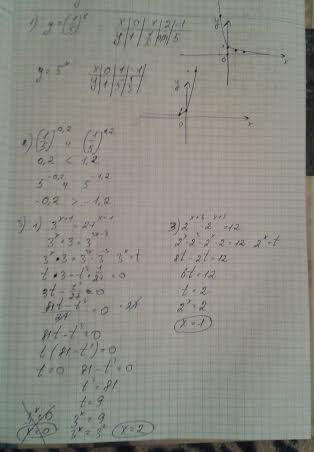 1) y=(1/5)^x
x | 0 | 1 | 2 | -1
y | 1 | 1/5 | 5
y = 5^x
x | 0 | 1 | -1
y | 1 | 5 | 1/5
y
0
x
y
0
x
2) (1/5)^0,2 и (1/5)^1,2
0,2 < 1,2
5^-0,2 и 5^-1,2
-0,2 > -1,2
3) 1) 3^x+1 = 27^x-1
3^x+1 = 3^3x-3
3^x · 3 = 3^3x · 3^-3 3^x = t
t · 3 - t^3 · 1/27 = 0
3t - t^3/27 = 0
81t - t^3/27 = 0 · 27
81t - t^3 = 0
t (81 - t^2) = 0
t = 0 81 - t^2 = 0
t^2 = 81
t = 9
3^x = 0 3^x = 9
x = 0 3^x = 3^2 x = 2
2) 2^x+3 - 2^x+1 = 12
2^x · 2^3 - 2^x · 2 = 12 2^x = t
8t - 2t = 12
6t = 12
t = 2
2^x = 2
x = 1